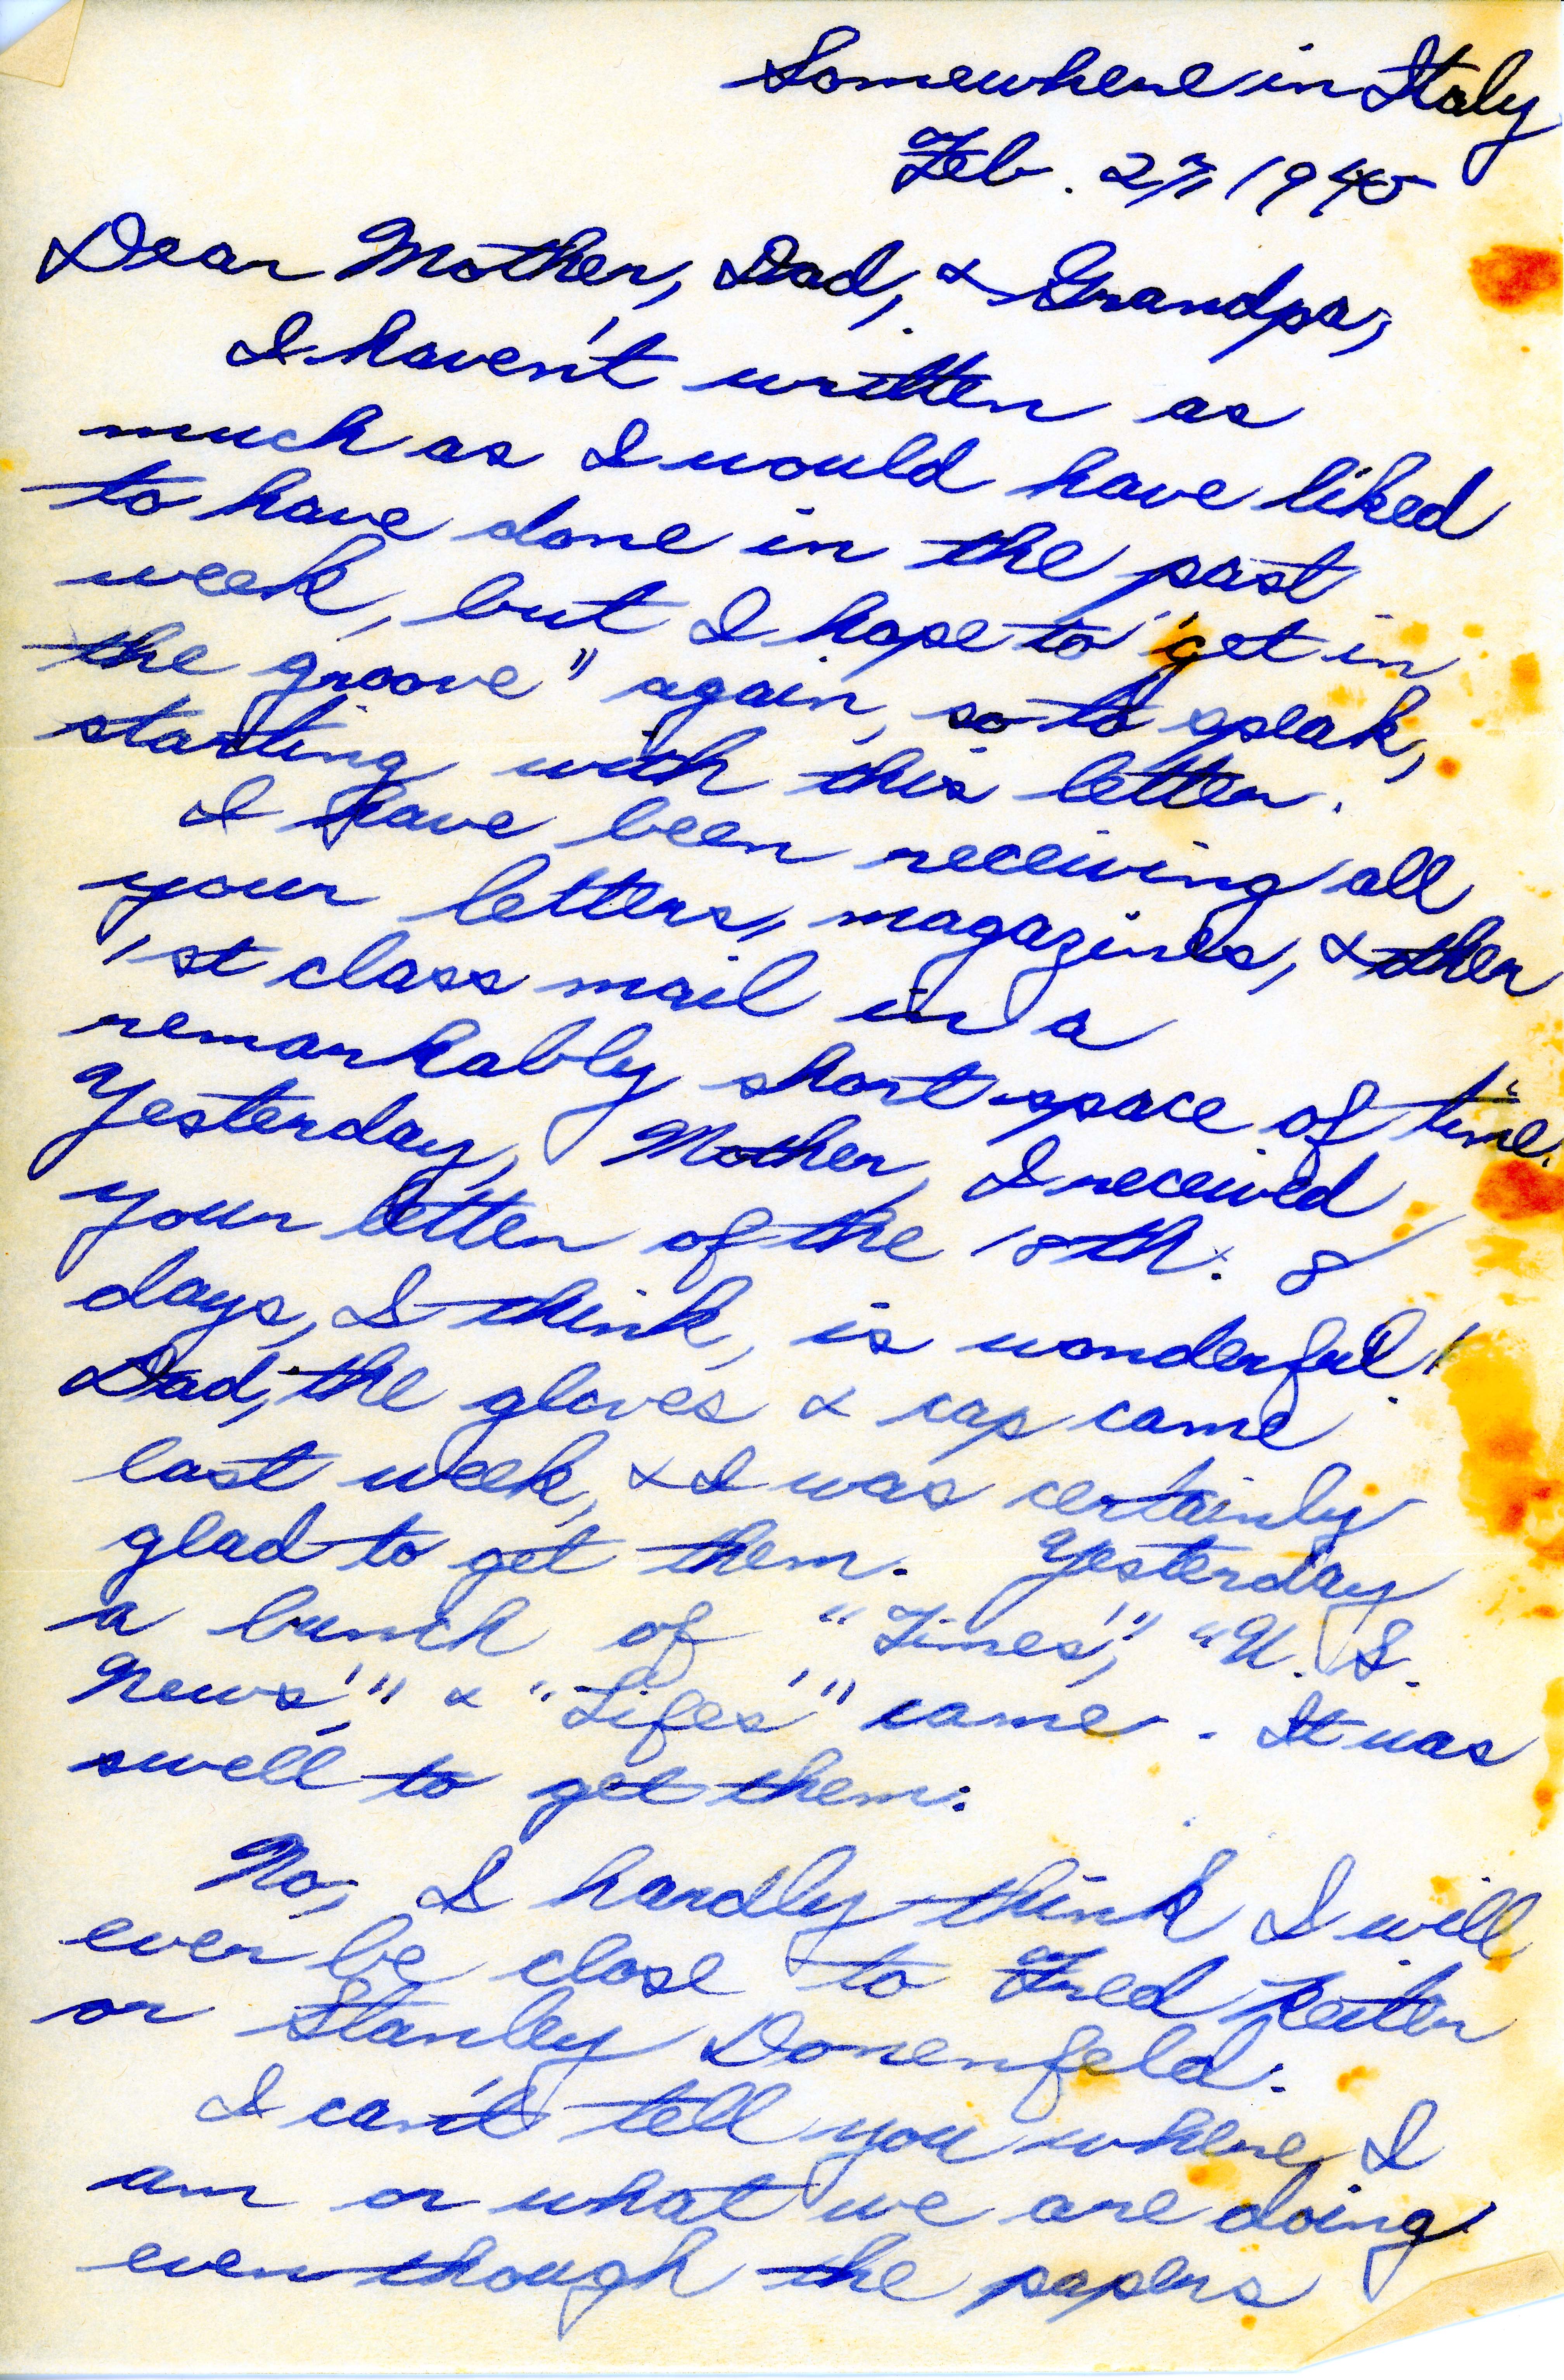 Somewhere in Italy
Feb. 27, 1945
Dear Mother, Dad, & Grandpa,
I haven't written as
much as I would have liked
to have done in the past
week, but I hope to "get in
the groove" again, so to speak,
starting with this letter.
I have been receiving all
your letters, magazines, & other
1st class mail in a
remarkably short space of time.
Yesterday, Mother, I received
your letter of the 18th. 8
days, I think, is wonderful!
Dad, the gloves & cap came
last week, & I was certainly
glad to get them. Yesterday
a bunch of "Times'," "U.S.
News'," & "Lifes'" came. It was
swell to get them.
No, I hardly think I will
ever be close to Fred Reiter
or Stanley Donenfeld.
I can't tell you where I
am or what we are doing
even though the papers